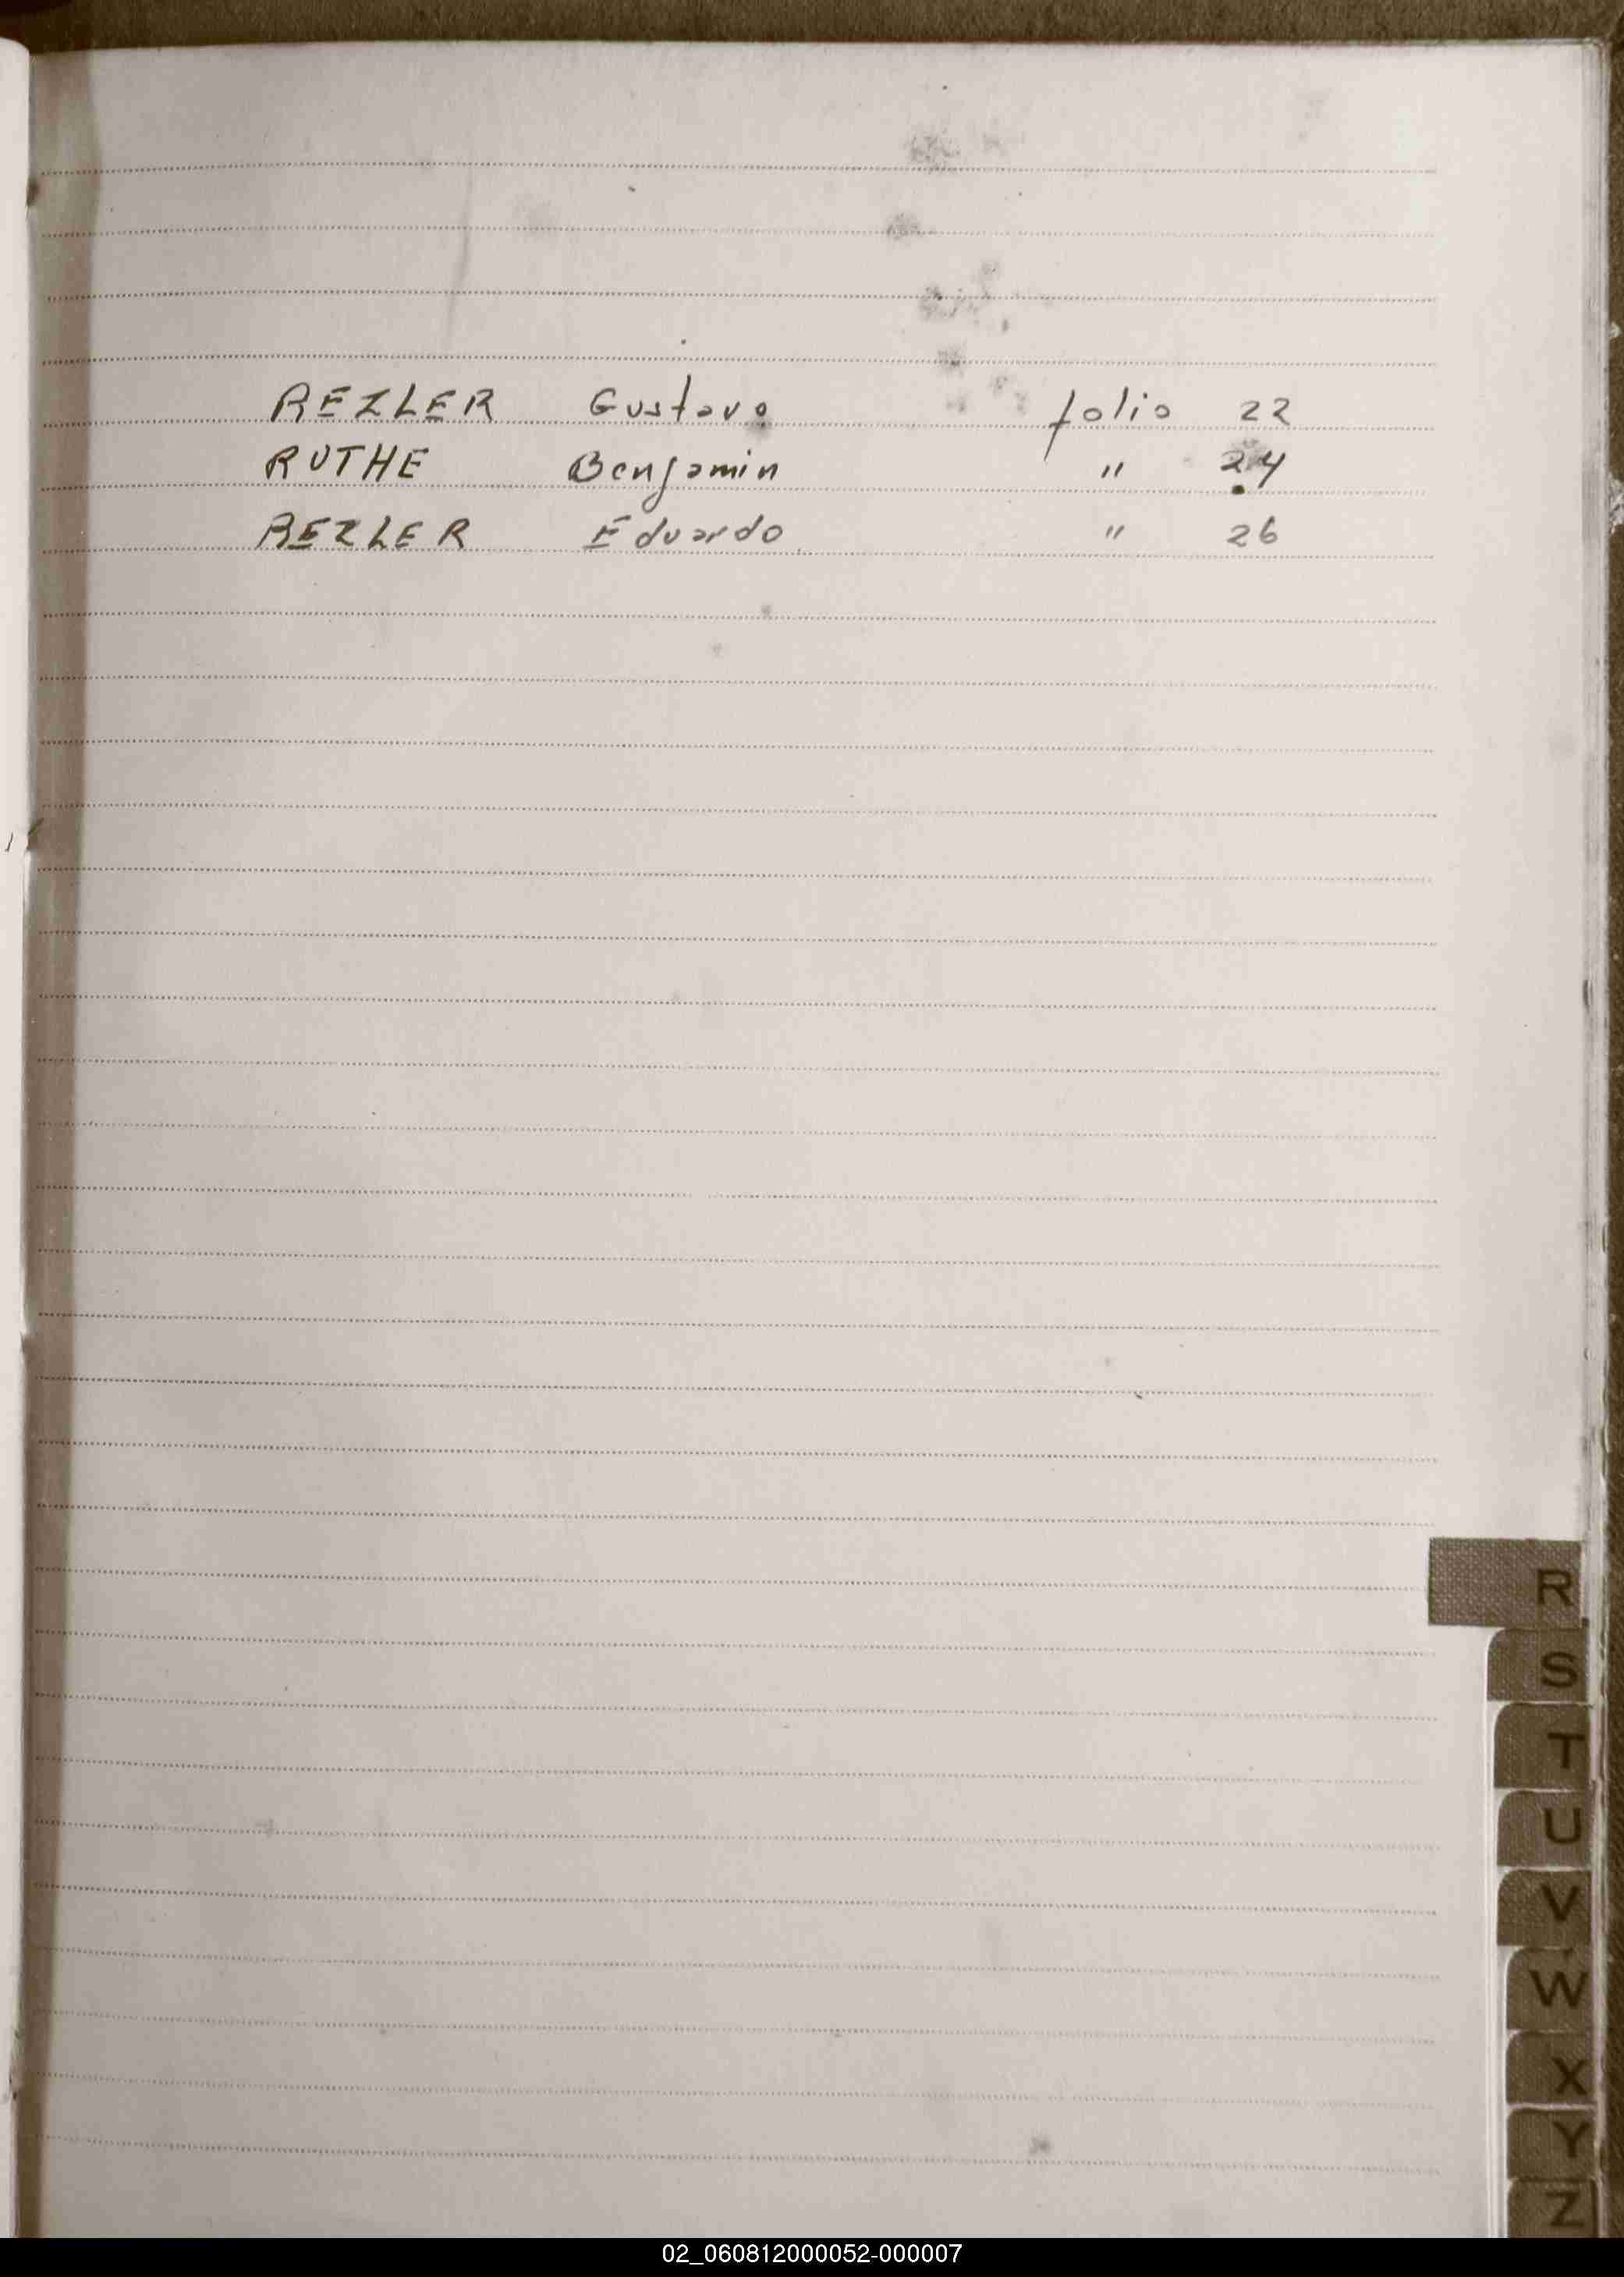 REZLER Gustavo folio 22
RUTHE Benjamin " 24
REZLER Eduardo " 26
R
S
T
U
V
W
X
Y
Z
02_060812000052-000007